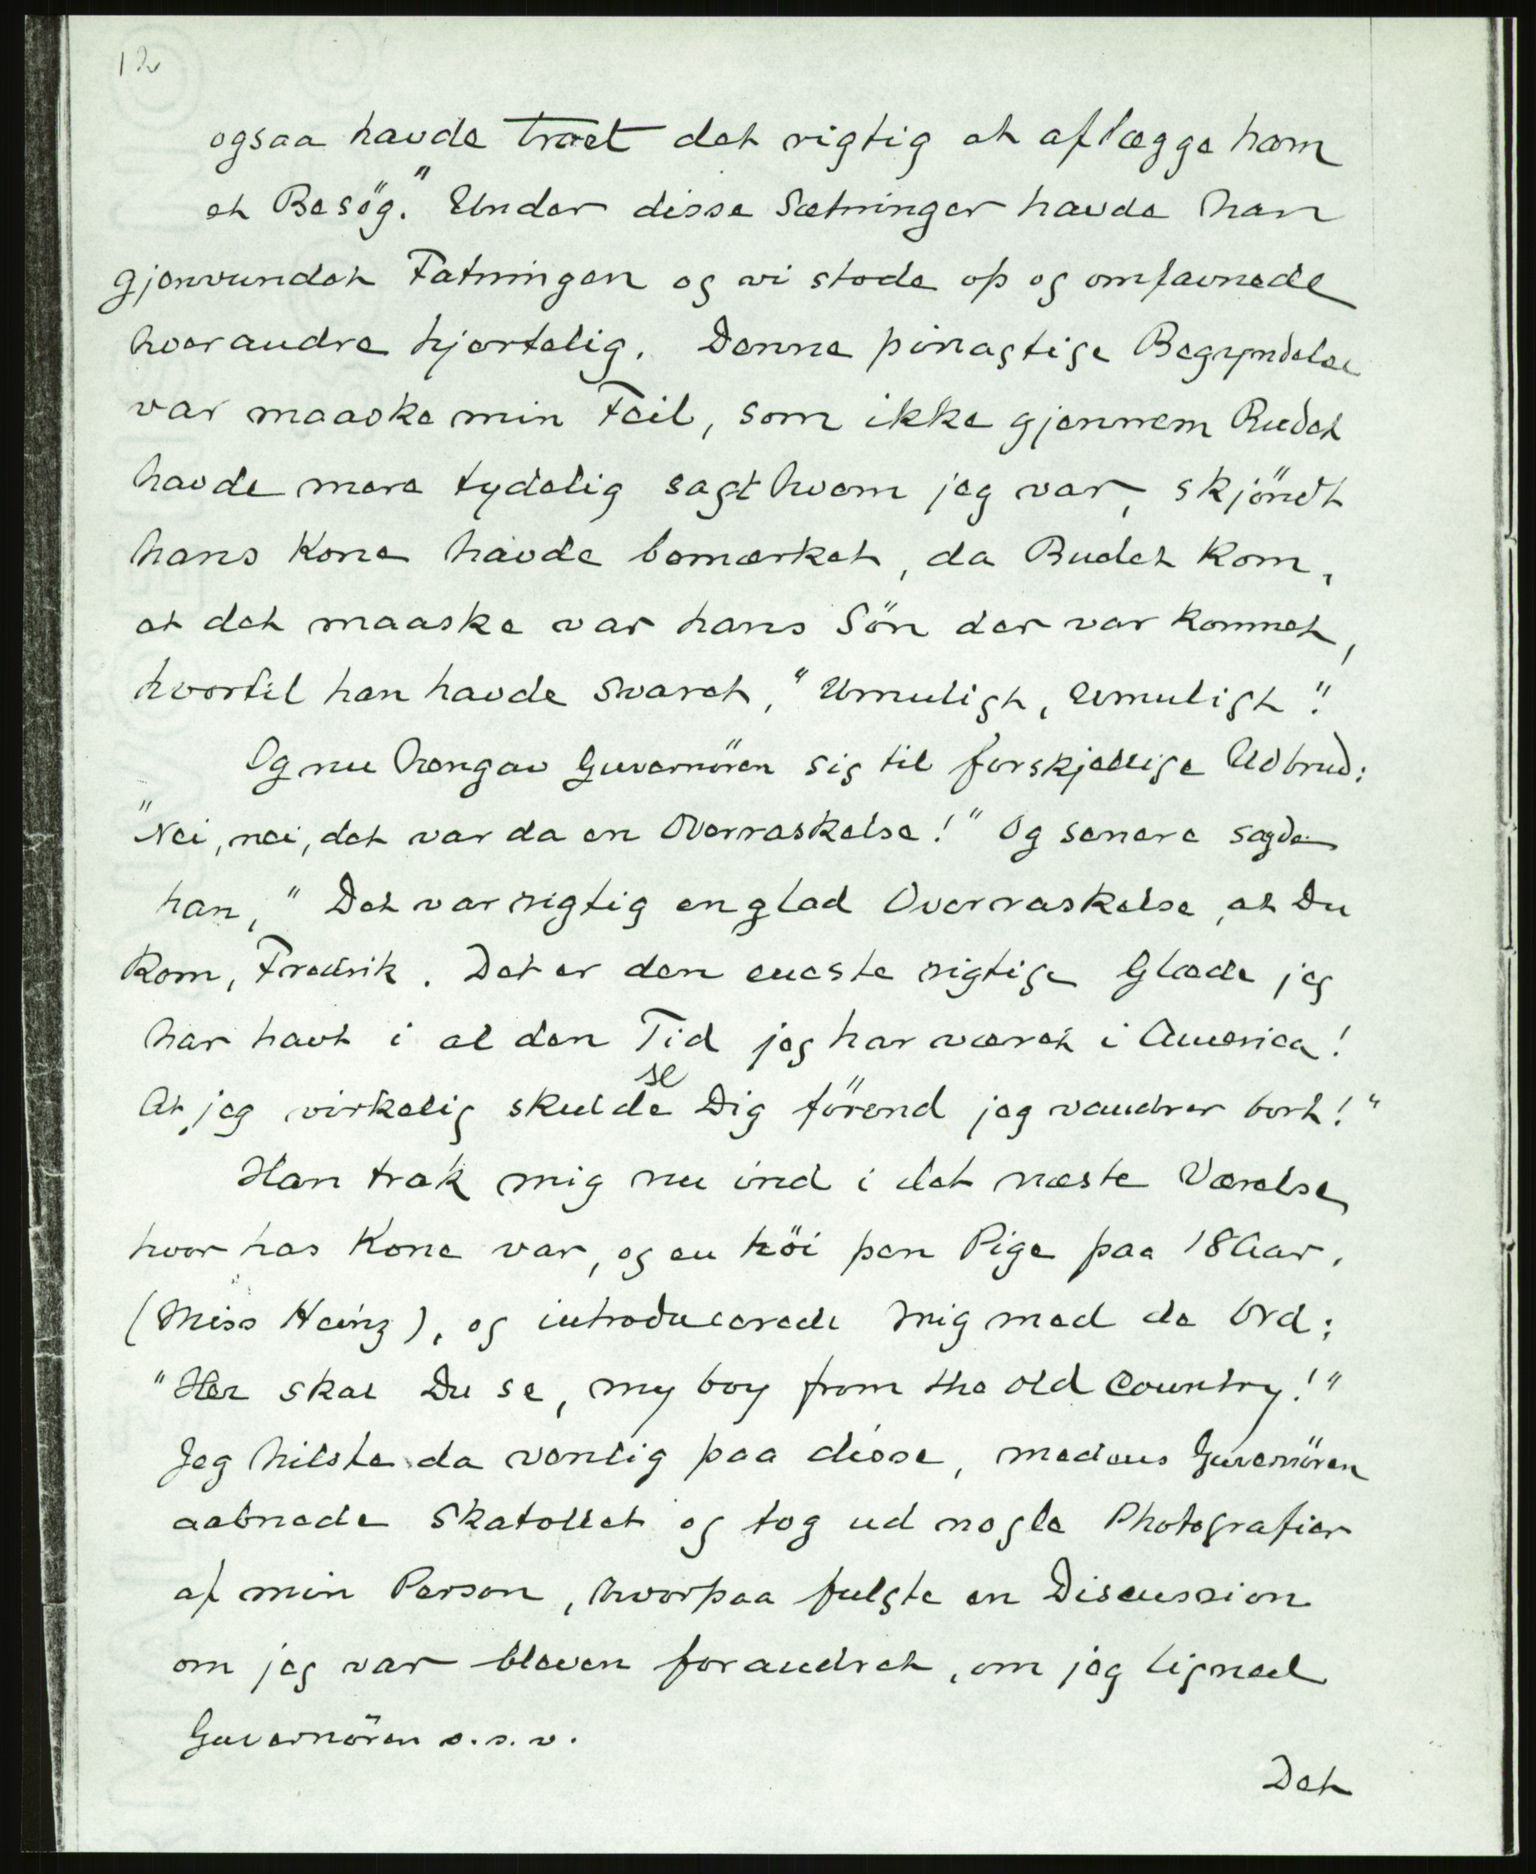 12
ogsaa havde troet det rigtig at aflægge ham
et Besög." Under disse Sætninger havde han
gjenvundet Fatningen og vi stode op og omfavnede
hverandre hjertelig. Denne pinagtige Begyndelse
var maaske min Feil, som ikke gjennem Budet
havde mere tydelig sagt hvem jeg var, skjöndt
hans Kone havde bemærket, da Budet kom,
at det maaske var hans Sön der var kommet,
hvortil han havde svaret, "Umuligt, Umuligt".
Og nu hengav Guvernören sig til forskjellige Udbrud:
"Nei, nei, det var da en Overraskelse!" Og senere sagde
han, "Det var rigtig en glad Overraskelse, at Du
kom, Fredrik. Det er den eneste rigtige Glæde jeg
har havt i al den Tid jeg har været i America!
At jeg virkelig skulde se Dig förend jeg vandrer bort!"
Han trak mig nu ind i det næste Værelse,
hvor has Kone var, og en höi pen Pige paa 18 Aar,
(Miss Heinz), og introducerede mig med de Ord:
"Her skal Du se, my boy from the old Country!"
Jeg hilste da venlig paa disse, medens Guvernören
aabnede Skatollet og tog ud nogle Photografier
af min Person, hvorpaa fulgte en Discussion
om jeg var bleven forandret, om jeg ligned
Guvernören o.s.v.
Det